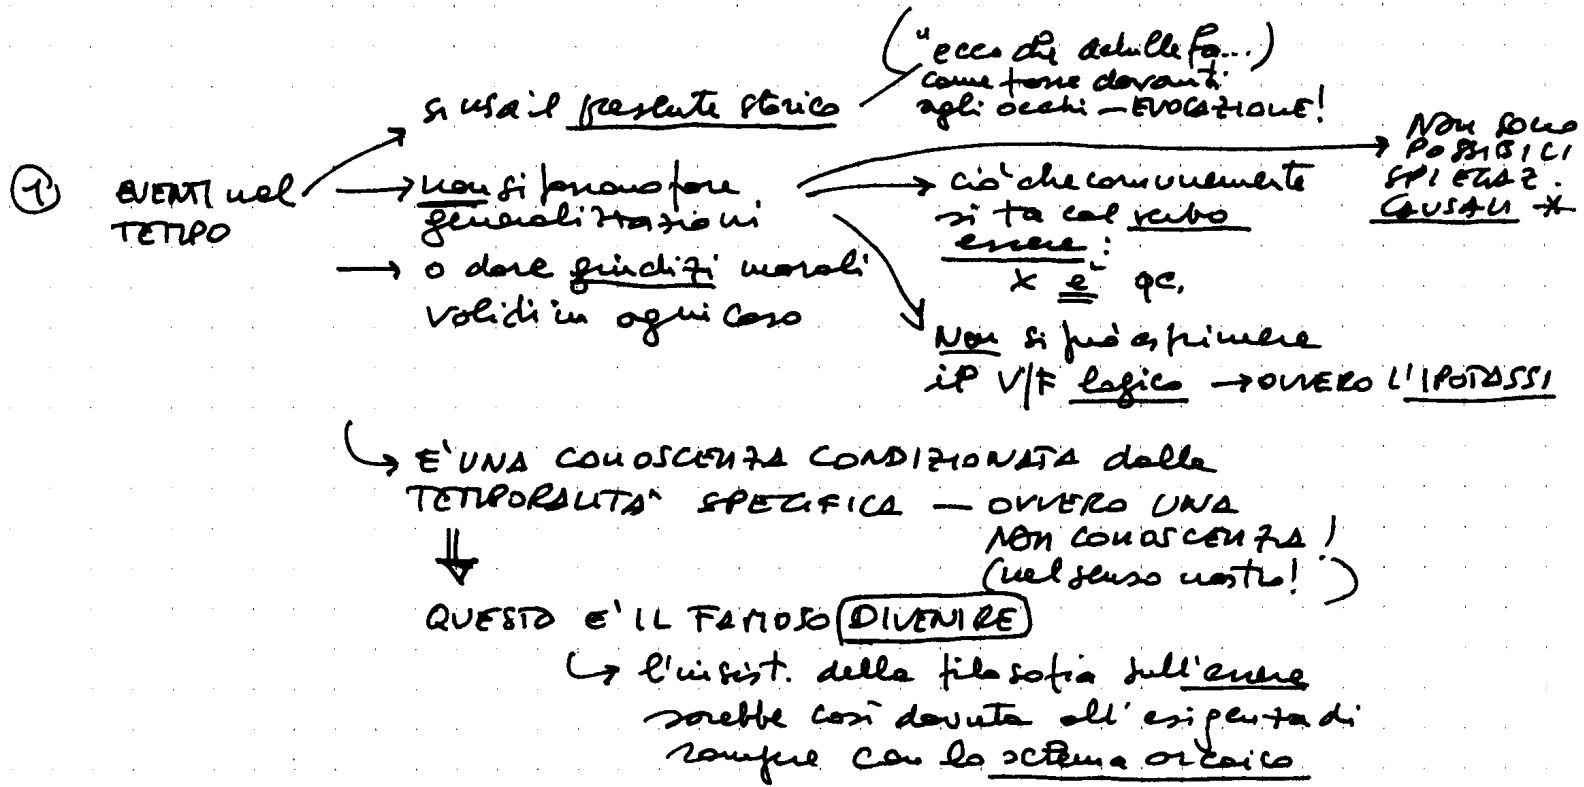 ("ecco che Achille fa...)
come fosse davanti
agli occhi — EVOCAZIONE!
si usa il presente storico
① EVENTI nel
TEMPO
→ non si possono fare
generalizzazioni
→ o dare giudizi morali
validi in ogni caso
→ NON SONO
POSSIBILI
SPIEGAZ.
CAUSALI *
→ ciò che comunemente
si fa col verbo
essere:
x è qc.
Non si può esprimere
il V/F logico → OVVERO L'IPOTASSI
↳ E' UNA CONOSCENZA CONDIZIONATA dalla
TEMPORALITA' SPECIFICA — OVVERO UNA
NON CONOSCENZA!
(nel senso nostro!)
⇓
QUESTO E' IL FAMOSO DIVENIRE
↳ l'insist. della filosofia sull'essere
sarebbe così dovuta all'esigenza di
rompere con lo schema arcaico